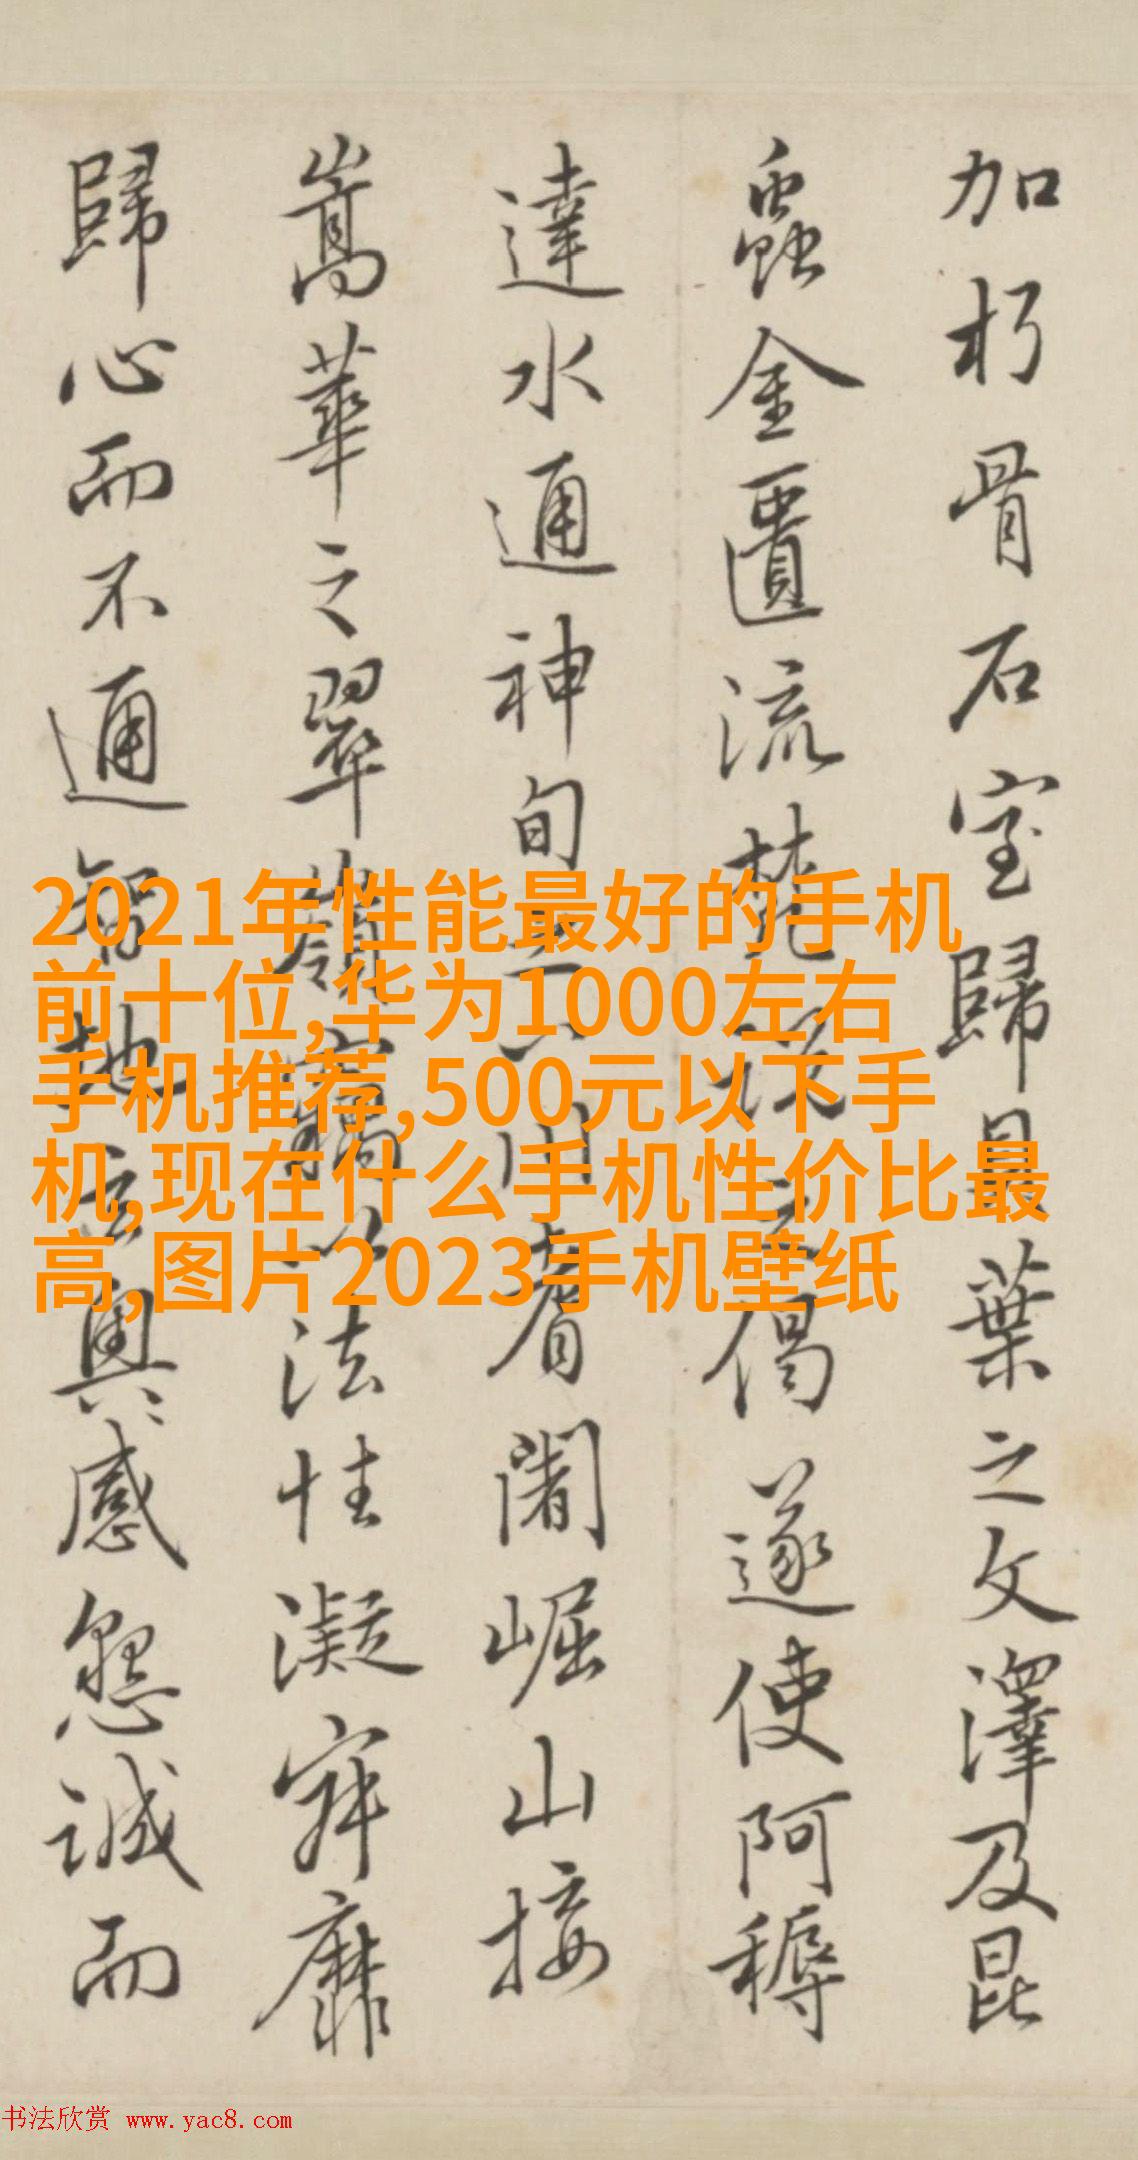 加朽骨石室歸貝葉之文澤及昆
蟲金匱流梵說之偈遂使阿耨
達水通神旬之八川耆闍崛山接
嵩華之翠嶺竊以法性凝寂靡
歸心而不通智地玄奧感懇誠而
2021年性能最好的手机
前十位,华为1000左右
手机推荐,500元以下手
机,现在什么手机性价比最
高,图片2023手机壁纸
书法欣赏 www.yac8.com